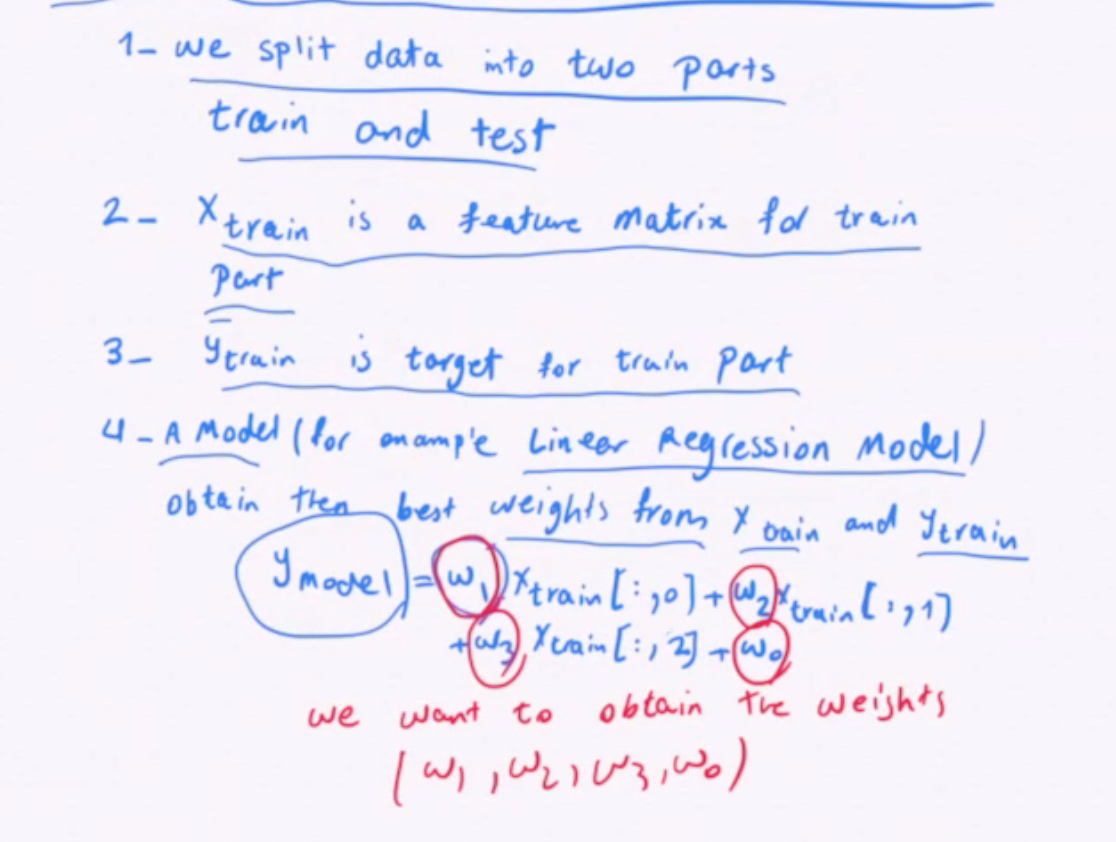 1- we split data into two parts
train and test
2- X train is a feature matrix for train
part
3- y train is target for train part
4- A Model (for examp'e Linear Regression Model)
obtain then best weights from X train and y train
y model = w1 x train [:,0] + w2 x train [:,1]
+ w3 x train [:,2] + w0
we want to obtain the weights
(w1, w2, w3, w0)